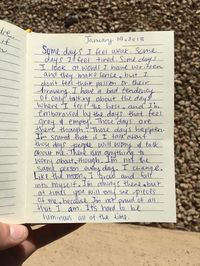 January 19, 2018
Some days I feel weak. Some
days I feel tired. Some days
I look at words I have written
and they make sense, but I
don't feel their passion or their
I have a bad tendency
of only talking about the days
where I feel the best, and I'm
embarassed by the days that feel
grey & empty. Those days are
there though. Those days happen.
I'm scared that if I talk about
those days people will worry
about me. There isn't anything to
worry about, though. I'm not the
same person every day. I change.
Like the moon, I grow and fall
into myself. I'm always there, but
at times you will only see pieces
of me, because I'm not proud of all
that I am. It's hard to be
luminous all of the time.